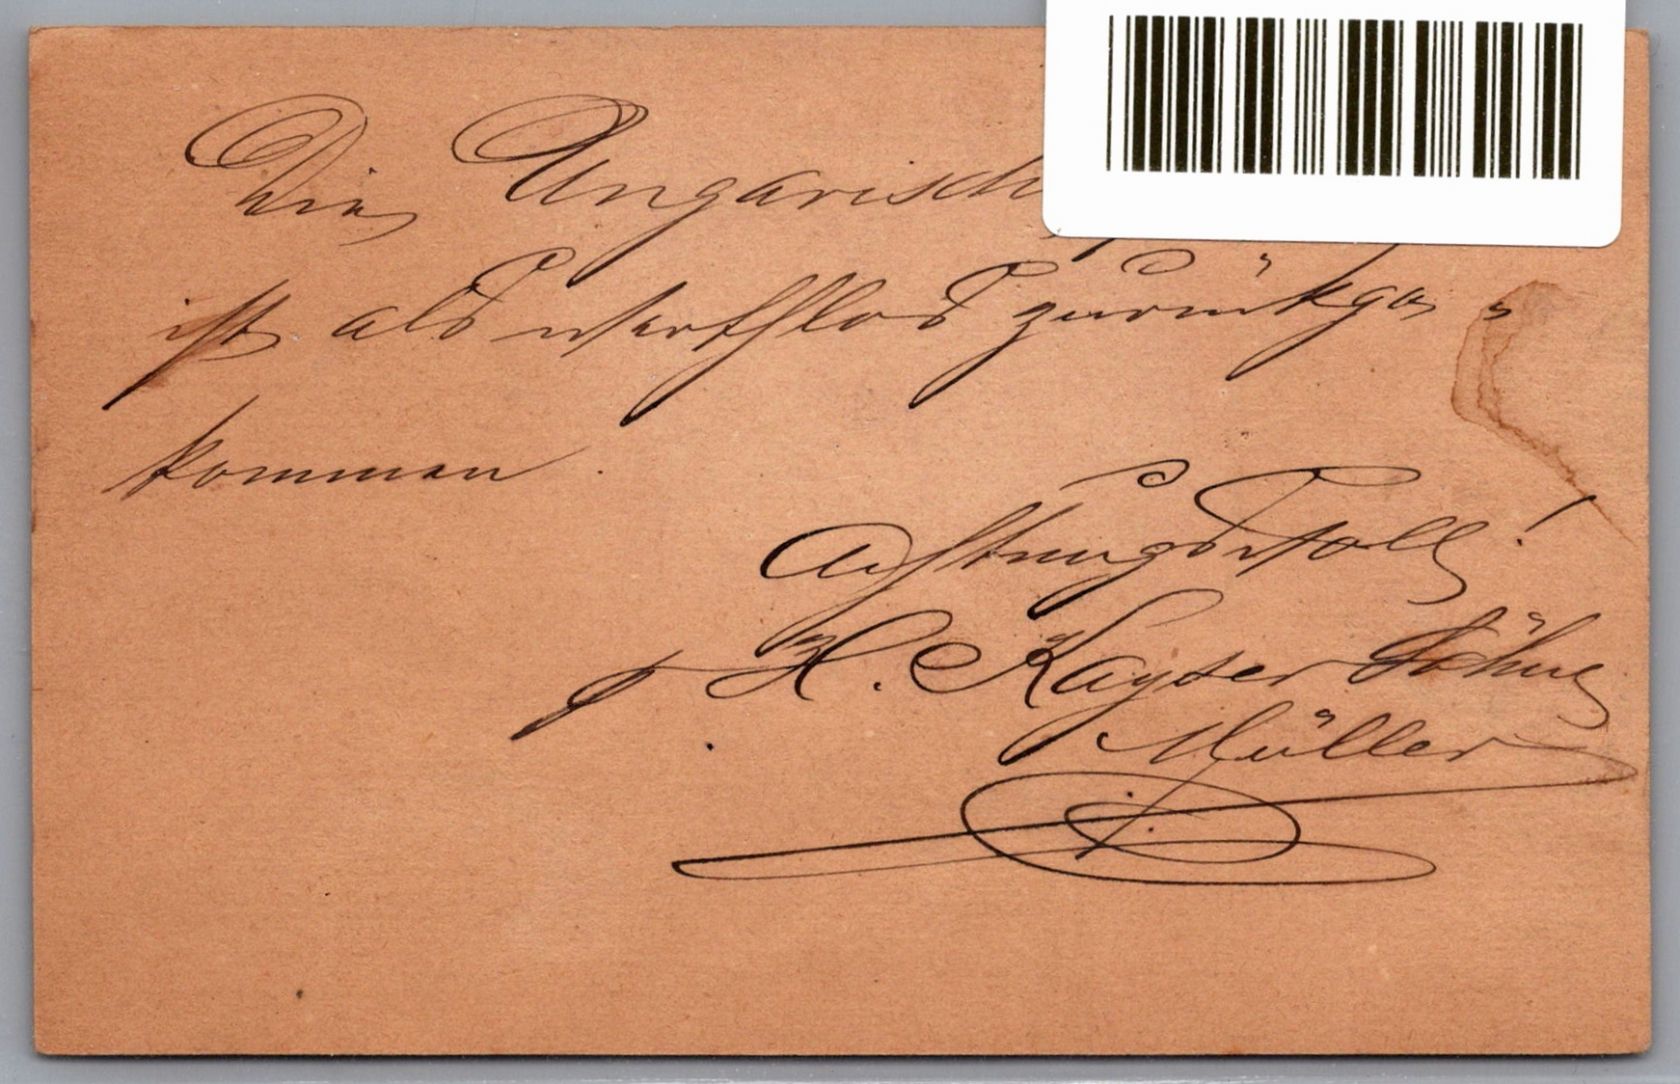 Die Ungarisch
ist als werthlos zurückge=
kommen.
Achtungsvoll!
p H. Kayser Söhne
Müller